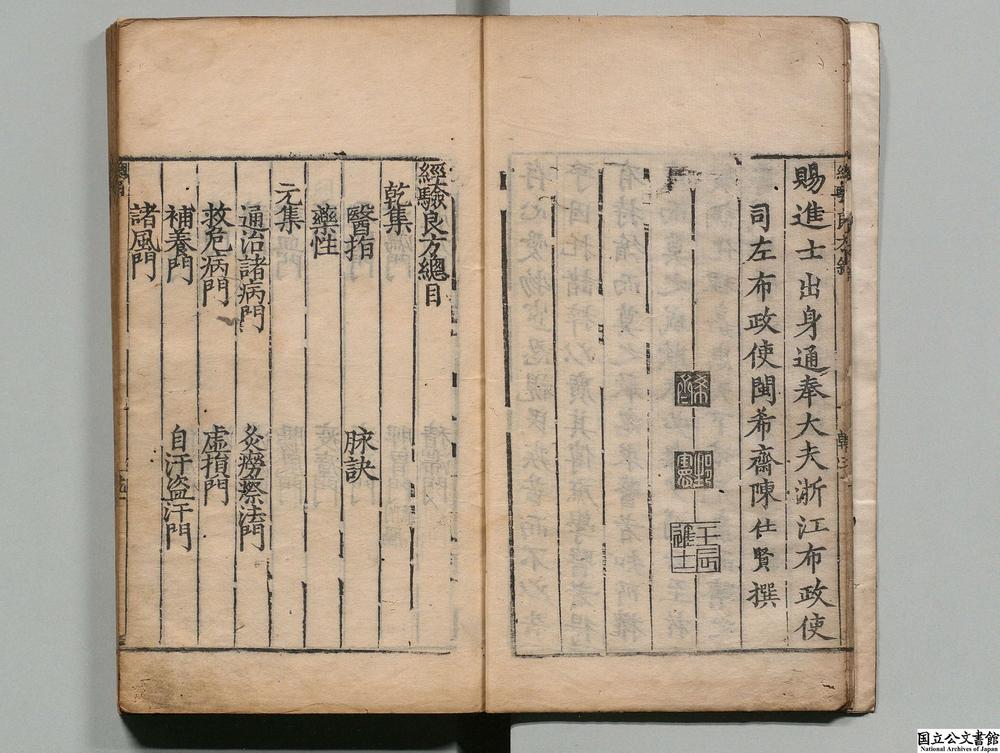 賜進士出身通奉大夫浙江布政使
司左布政使閩希齋陳仕賢撰
希齋
邦憲
壬辰進士
經驗良方總目
乾集
醫指 脉訣
藥性
元集
通治諸病門 灸癆瘵法門
救危病門 虛損門
補養門 自汗盗汗門
諸風門
国立公文書館
National Archives of Japan